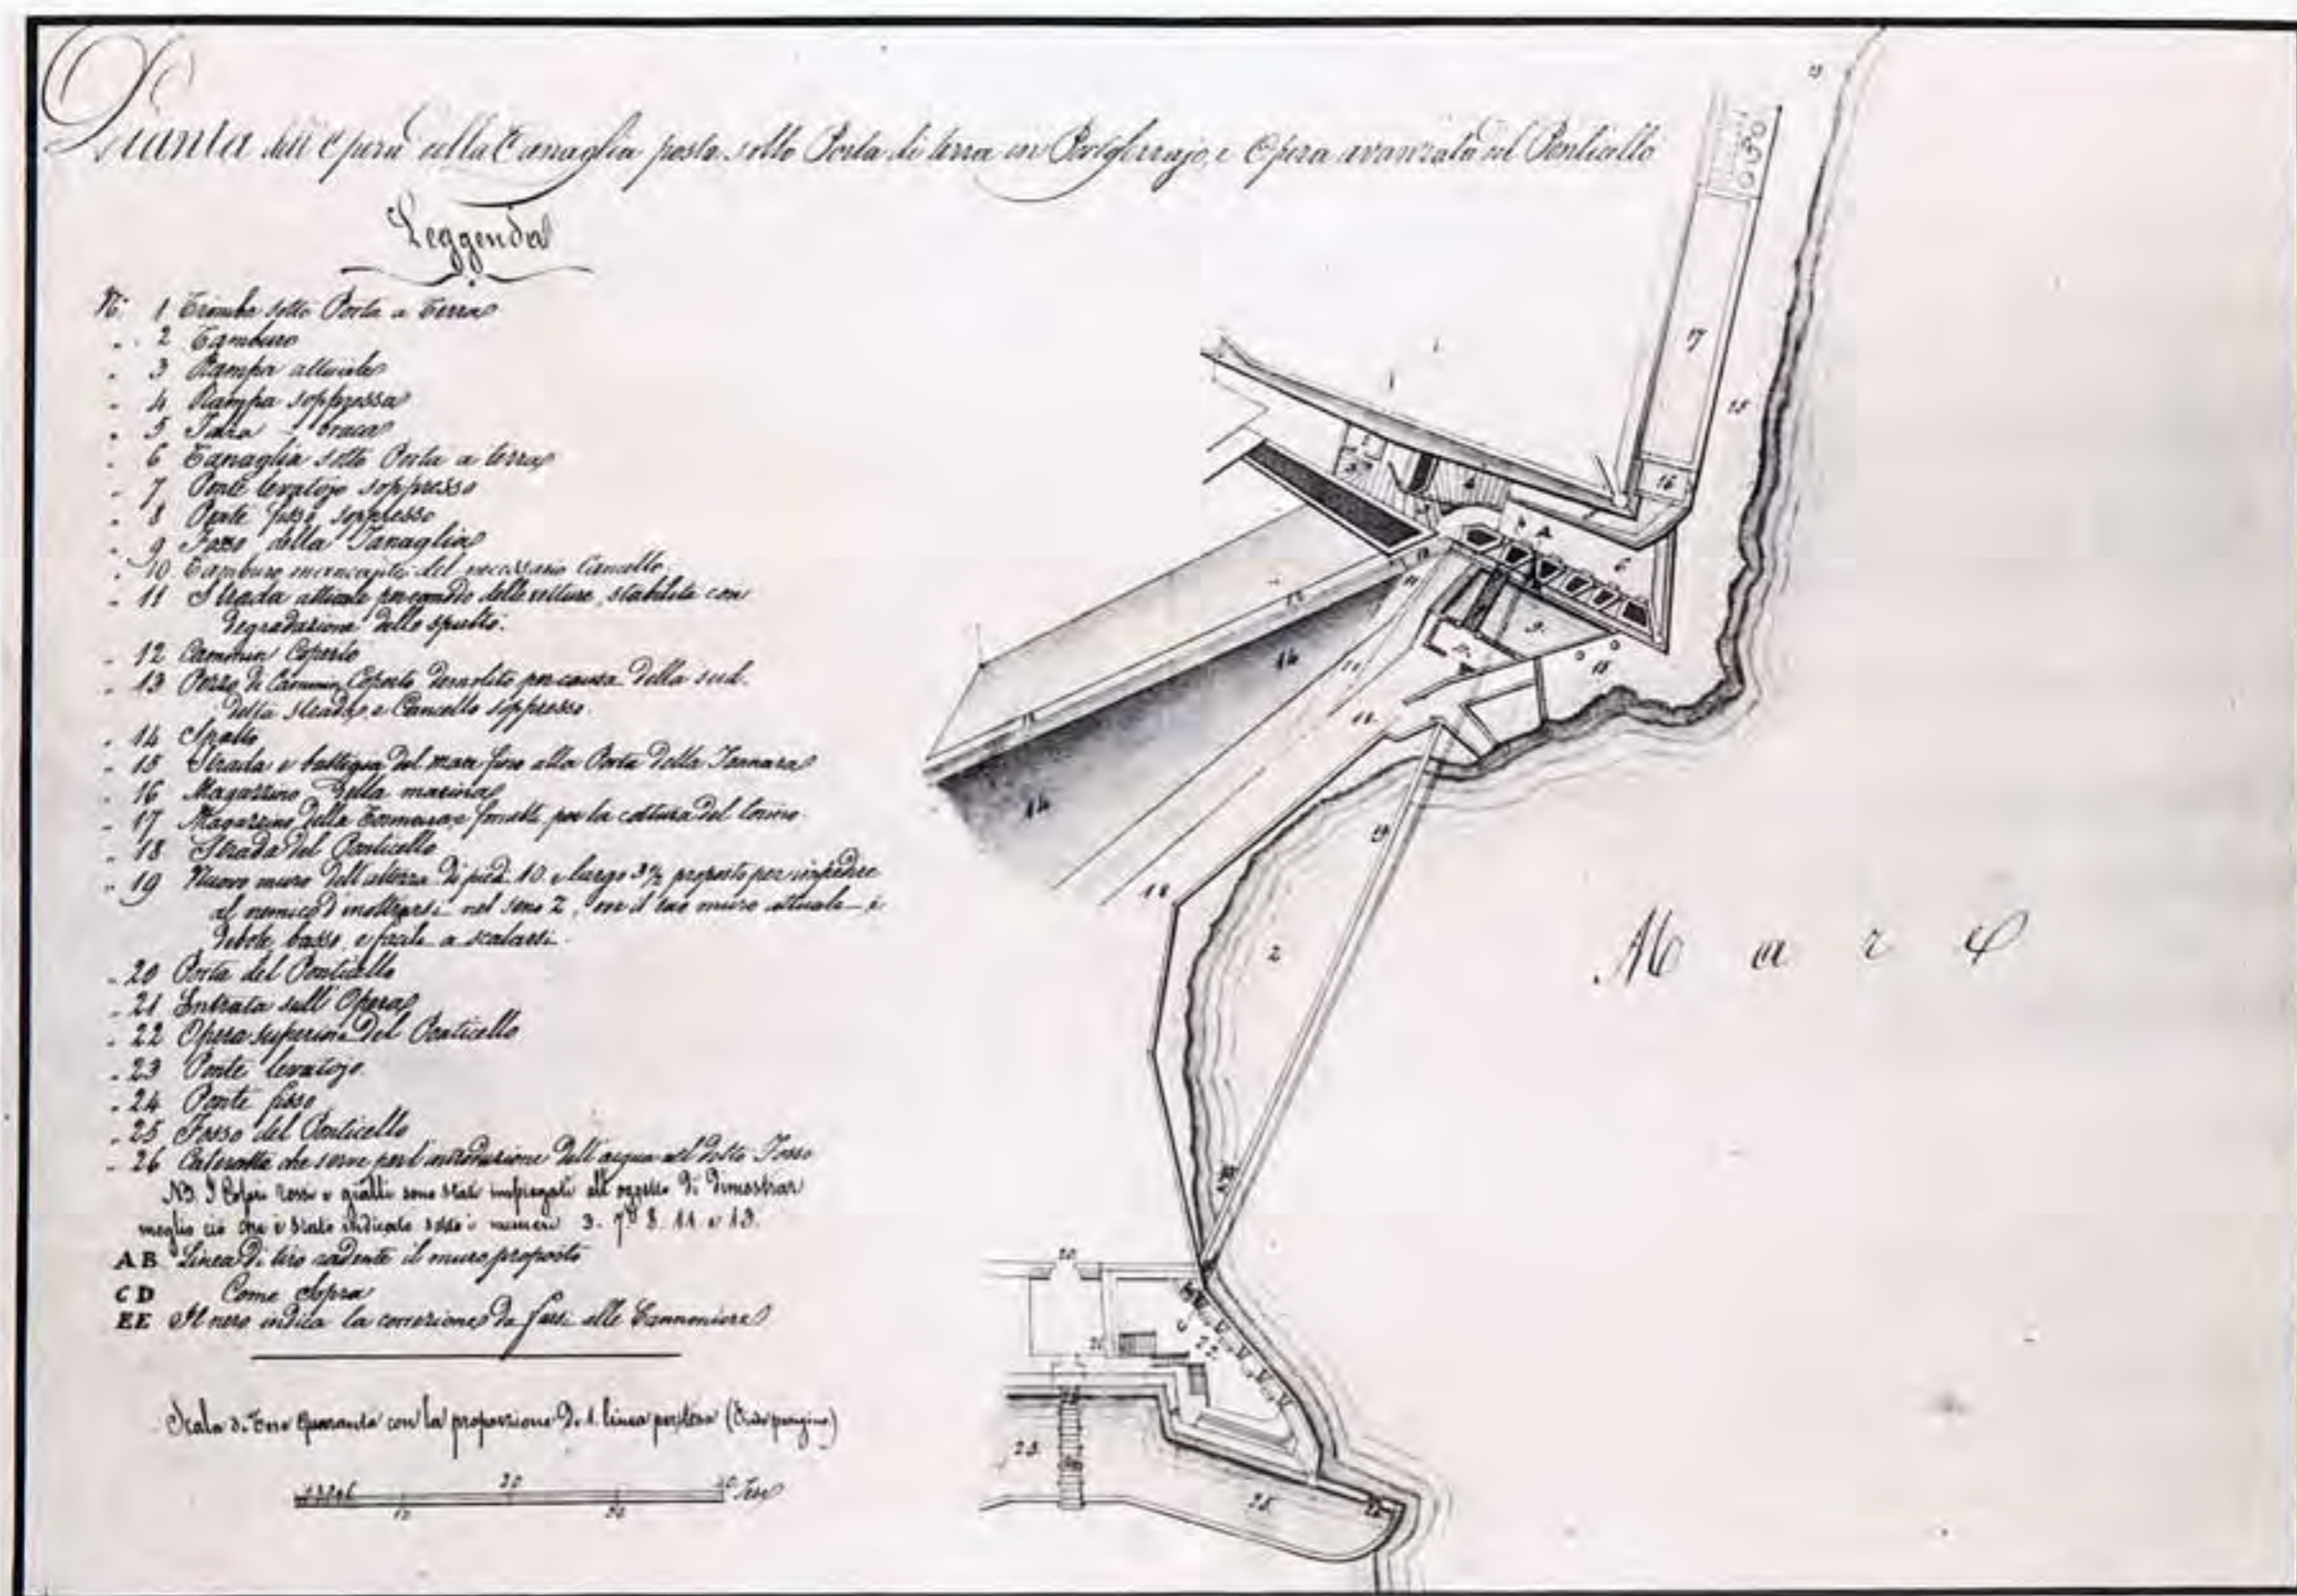 Pianta dell'Opera della Tanaglia posta sotto Porta di terra in Portoferrajo, e Opera avanzata del Ponticello
Leggenda
N.° 1 Tromba sotto Porta a Terra
" 2 Tamburo
" 3 Rampa attuale
" 4 Rampa soppressa
" 5 Falsa-braca
" 6 Tanaglia sotto Porta a terra
" 7 Ponte levatojo soppresso
" 8 Ponte fisso soppresso
" 9 Fosso della Tanaglia
" 10 Tamburo mancante del necessario Cancello
" 11 Strada attuale per comodo delle vetture, stabilita con
degradazione dello spalto.
" 12 Cammin Coperto
" 13 Pezzo di Cammin Coperto demolito per causa della sud.
detta strada, e Cancello soppresso.
" 14 Spalto
" 15 Strada e battigia del mare fino alla Porta della Tonnara
" 16 Magazzino della marina
" 17 Magazzino della Tonnara e fornelli per la cottura del tonno.
" 18 Strada del Ponticello
" 19 Nuovo muro dell'altezza di piedi 10 e largo 3½ proposto per impedire
al nemico d'inoltrarsi nel seno Z, ove il suo muro attuale è
debole, basso, e facile a scalarsi.
" 20 Porta del Ponticello
" 21 Entrata sull'Opera
" 22 Opera superiore del Ponticello
" 23 Ponte levatojo
" 24 Ponte fisso
" 25 Fosso del Ponticello
" 26 Cateratta che serve per l'introduzione dell'acqua nel detto Fosso
NB. I Colori rossi e gialli sono stati impiegati all'oggetto di dimostrar
meglio ciò che è stato indicato sotto i numeri 3. 7. 8. 11 e 13.
AB Linea di tiro radente il muro proposto
CD Come Sopra
EE Il nero indica la correzione da farsi alle Cannoniere
Scala di Tese Quaranta con la proporzione di 1. linea per tesa
20
40 Tese
10
30
17
15
16
4
A
6
9
12
14
11
18
14
12
18
19
Z
Mare
20
21
22
C
25
25
26